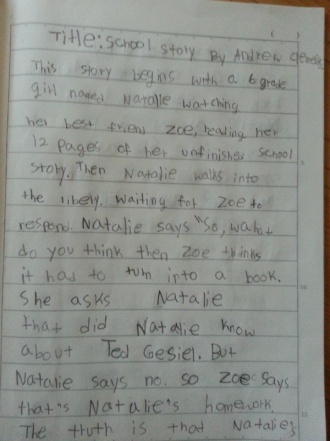 Title: school story By Andrew Clements
This story begins with a 6 grade
girl named Natalie watching
her best friend zoe, reading her
12 pages of her unfinished school
story. Then Natalie walks into
the libery. waiting for zoe to
respond. Natalie says "So, waht
do you think then zoe thinks
it had to turn into a book.
She asks Natalie
that did Natalie know
about Ted Gesiel. But
Natalie says no. so zoe says
that's Natalie's homework.
The truth is that Natalies